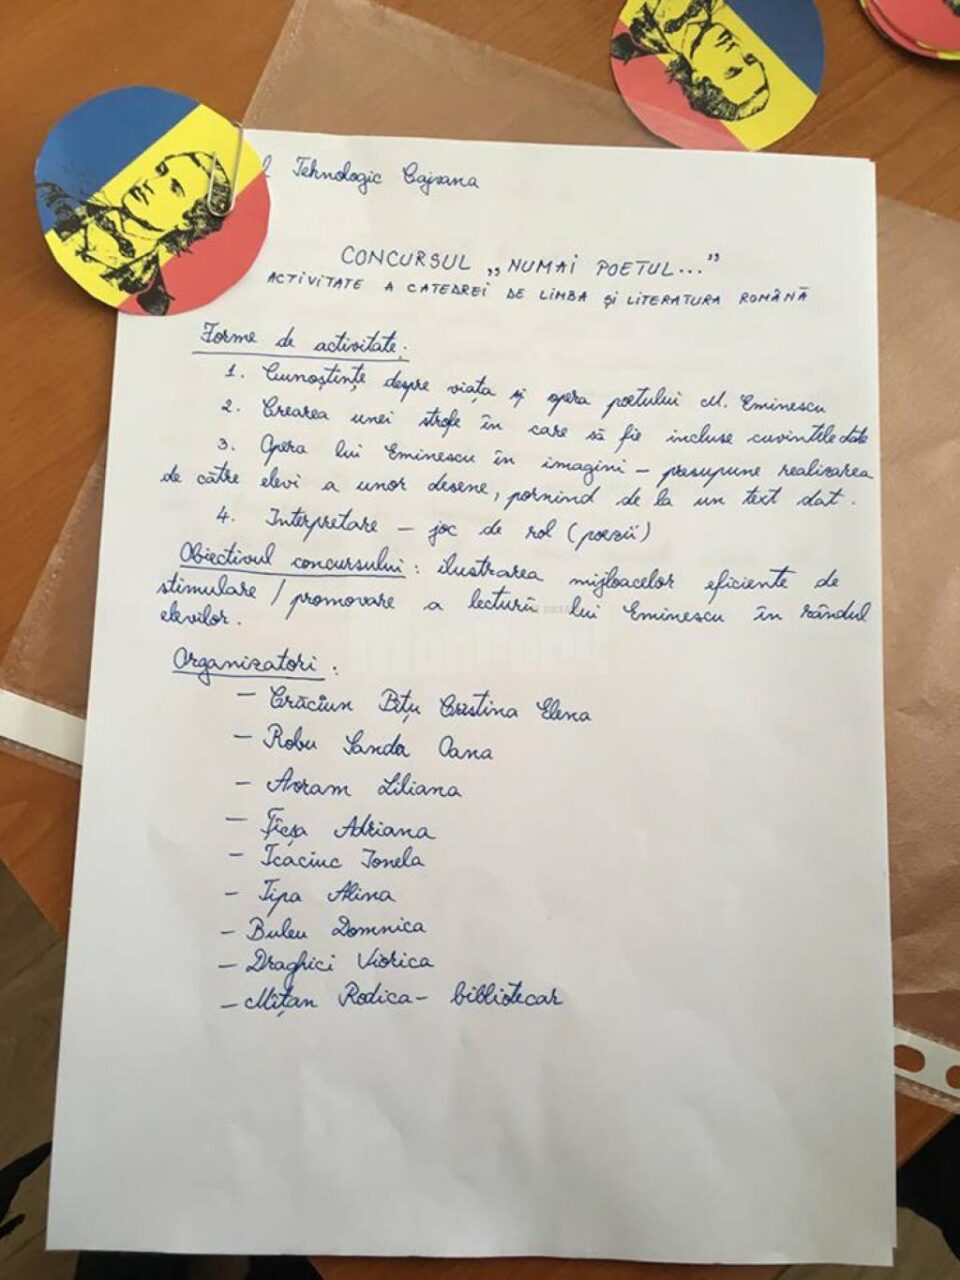 l Tehnologic Cajvana
CONCURSUL „NUMAI POETUL..."
ACTIVITATE A CATEDREI DE LIMBA ȘI LITERATURA ROMÂNĂ
Forme de activitate:
1. Cunoștințe despre viața și opera poetului M. Eminescu
2. Crearea unei strofe în care să fie incluse cuvintele date
3. Opera lui Eminescu în imagini – presupune realizarea
de către elevi a unor desene, pornind de la un text dat.
4. Interpretare – joc de rol (poezii)
Obiectivul concursului: ilustrarea mijloacelor eficiente de
stimulare / promovare a lecturii lui Eminescu în rândul
elevilor.
Organizatori:
– Crăciun Bițu Cristina Elena
– Robu Sanda Oana
– Avram Liliana
– Adriana
– Tcaciuc Ionela
– Țipa Alina
– Buleu Domnica
– Draghici Viorica
– Mîțan Rodica – bibliotecar